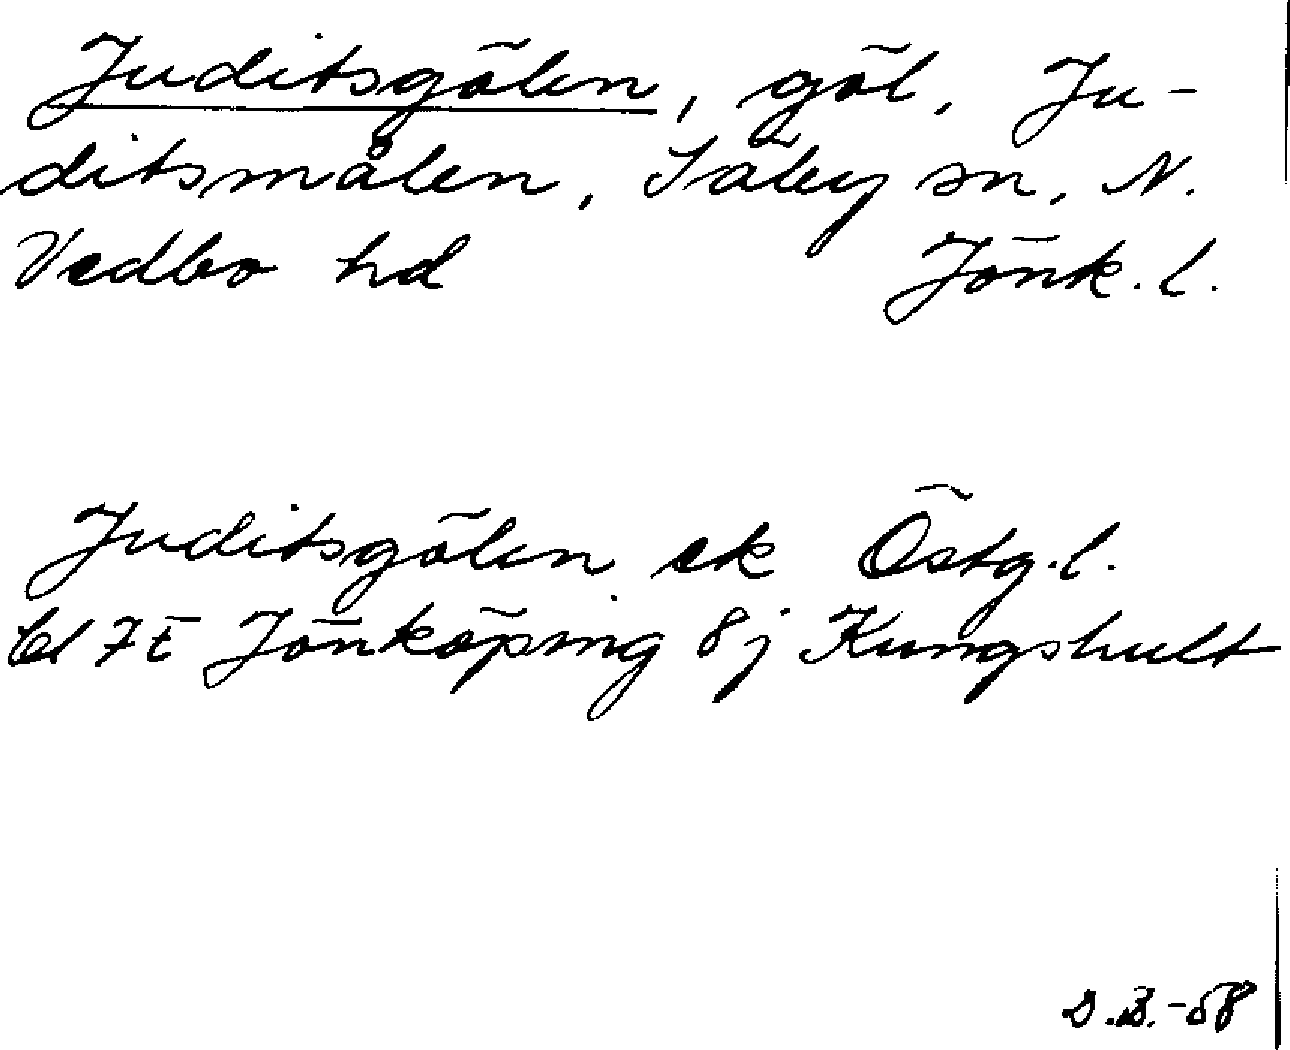 Juditsgölen, göl, Ju-
ditsmålen, Säby sn, N.
Vedbo hd Jönk. l.
Juditsgölen ek Östg. l.
bl 7E Jönköping 8j Kungshult
D.B.-58